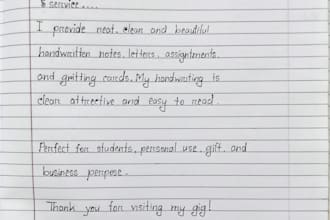 & service....
I provide neat, clean and beautiful
handwritten notes, letters, assignments,
and gritting cards. My handwriting is
clean attrective and easy to read.
Perfect for students, personal use, gift, and
business perpose.
Thank you for visiting my gig!